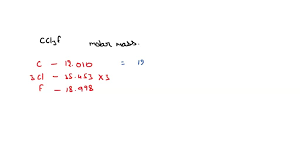 CCl3F molar mass.
C — 12.010 = 12
3Cl — 35.453 × 3
F — 18.998